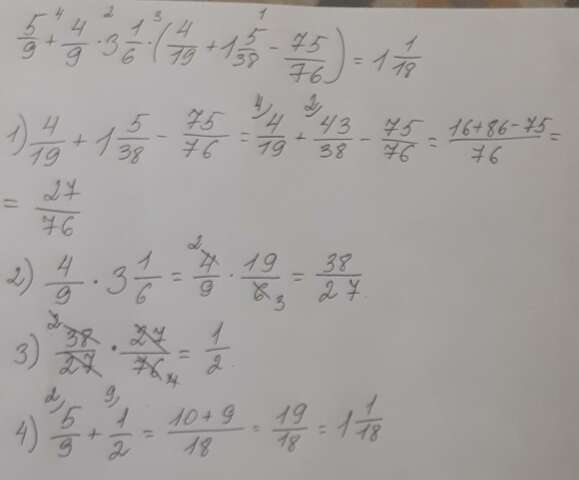 5/9 + 4/9 · 3 1/6 · (4/19 + 1 5/38 − 75/76) = 1 1/18
1) 4/19 + 1 5/38 − 75/76 = 4/19 + 43/38 − 75/76 = (16+86−75)/76 =
= 27/76
2) 4/9 · 3 1/6 = 4/9 · 19/6 = 38/27
3) 38/27 · 27/76 = 1/2
4) 5/9 + 1/2 = (10+9)/18 = 19/18 = 1 1/18